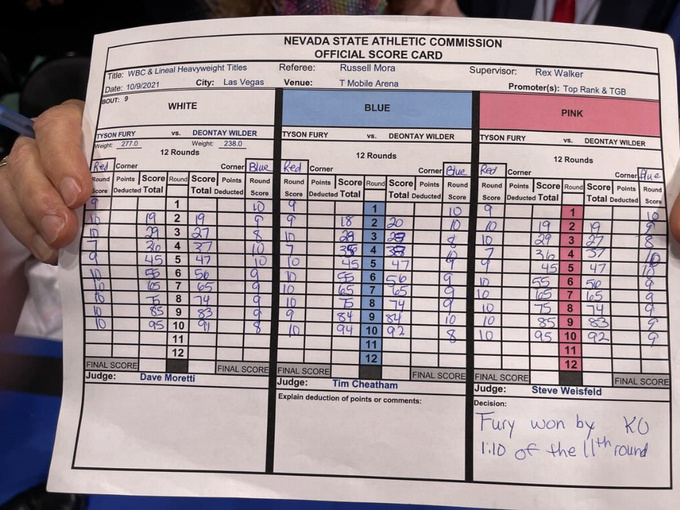 NEVADA STATE ATHLETIC COMMISSION
OFFICIAL SCORE CARD
Title: WBC & Lineal Heavyweight Titles Referee: Russell Mora Supervisor: Rex Walker
Date: 10/9/2021 City: Las Vegas Venue: T Mobile Arena Promoter(s): Top Rank & TGB
BOUT: 9
WHITE BLUE PINK
TYSON FURY vs. DEONTAY WILDER TYSON FURY vs. DEONTAY WILDER TYSON FURY vs. DEONTAY WILDER
Weight: 277.0 Weight: 238.0
12 Rounds 12 Rounds 12 Rounds
Red Corner Corner Blue Red Corner Corner Blue Red Corner Corner Blue
Round Score Points Deducted Score Total Round Score Total Points Deducted Round Score Round Score Points Deducted Score Total Round Score Total Points Deducted Round Score Round Score Points Deducted Score Total Round Score Total Points Deducted Round Score
9 1 10 9 1 10 9 1 10
10 19 2 19 9 9 18 2 20 10 10 19 2 19 9
10 29 3 27 8 10 3 8 10 29 3 27 8
7 36 4 37 10 7 4 10 7 36 4 37 10
9 45 5 47 10 10 45 5 47 9 45 5 47 10
10 55 6 56 9 10 55 6 56 9 10 55 6 56 9
10 65 7 65 9 10 65 7 65 9 10 65 7 65 9
10 75 8 74 9 10 75 8 74 9 10 75 8 74 9
10 85 9 83 9 9 84 9 84 10 10 85 9 83 9
10 95 10 91 8 10 94 10 92 8 10 95 10 92 9
11 11 11
12 12 12
FINAL SCORE FINAL SCORE FINAL SCORE FINAL SCORE FINAL SCORE FINAL SCORE
Judge: Dave Moretti Judge: Tim Cheatham Judge: Steve Weisfeld
Explain deduction of points or comments: Decision:
Fury won by KO
1:10 of the 11th round